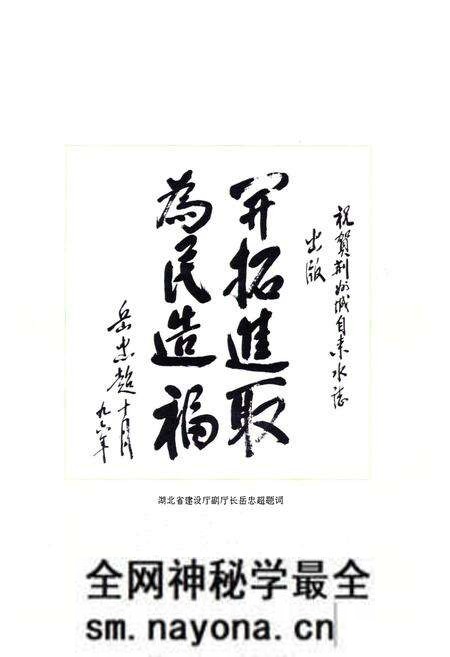 祝賀荆州城自来水誌
出版
開拓進取
為民造福
岳忠超十月
九六年
湖北省建设厅副厅长岳忠超题词
全网神秘学最全
sm.nayona.cn